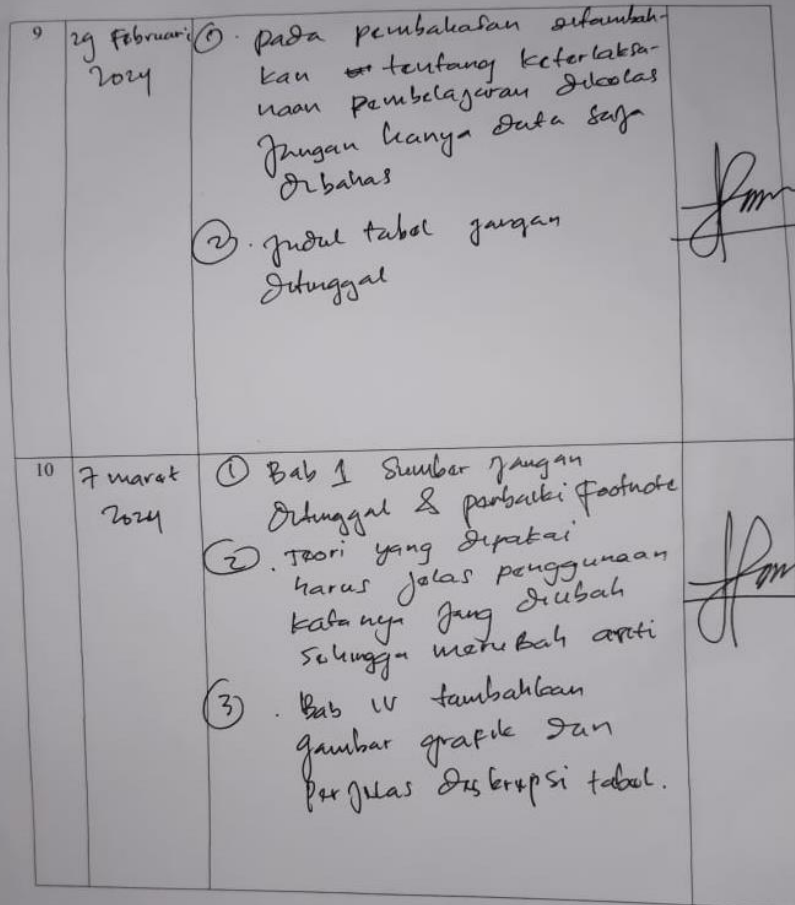 9
29 Februari
2024
① . pada pembahasan ditambah-
kan tentang keterlaksa-
naan pembelajaran dikelas
Jangan hanya data saja
dibahas
② . Judul tabel jangan
ditinggal
10
7 maret
2024
① Bab 1 Sumber jangan
ditinggal & perbaiki Footnote
② . Teori yang dipakai
harus jelas penggunaan
katanya jang diubah
sehingga merubah arti
③ . Bab IV tambahkan
gambar grafik dan
perjelas deskripsi tabel.